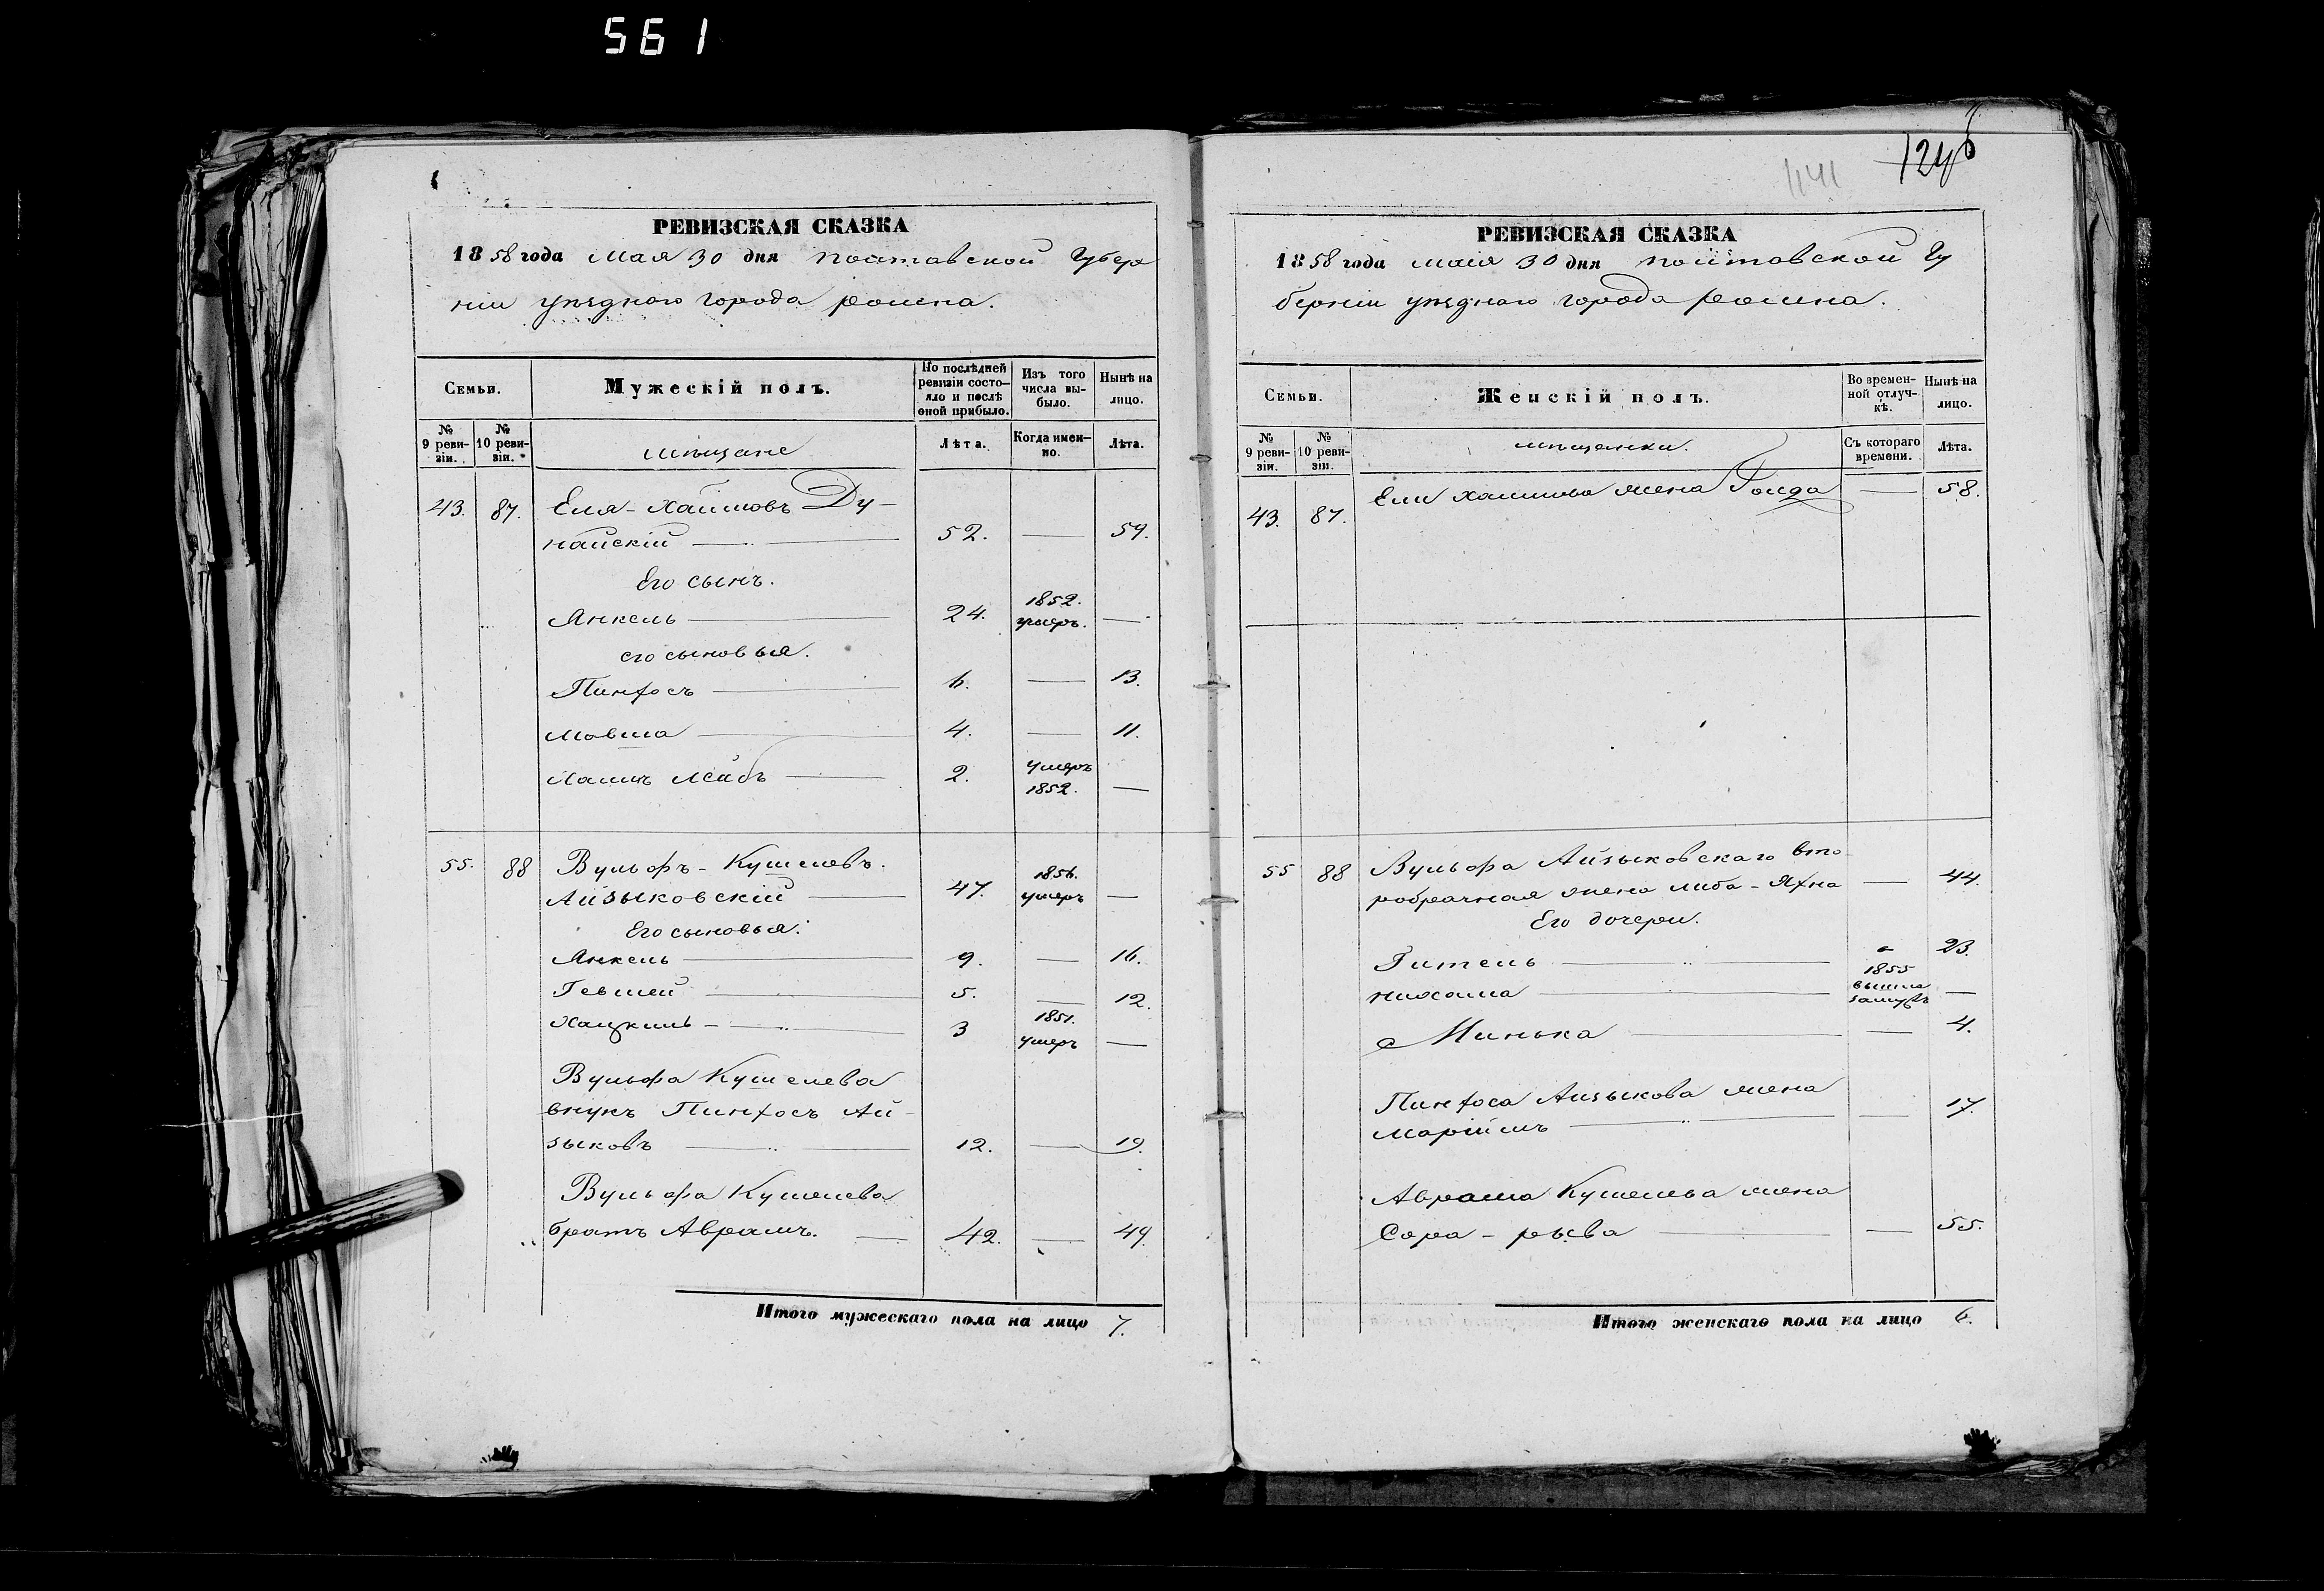 561
РЕВИЗСКАЯ СКАЗКА
1858 года Мая 30 дня Полтавской Губер
ніи уѣзднаго города Ромна.
Семьи.
Мужескій полъ.
По послѣдней ревизіи состо-
яло и послѣ
оной прибыло.
Изъ того
числа вы-
было.
Нынѣ на
лицо.
№
9 реви-
зіи.
№
10 реви-
зіи.
мѣщане
Лѣта.
Когда имен-
но.
Лѣта.
43. 87. Еля-Хаимовъ Ду-
найскій 52. — 59.
Его сынъ.
Янкель 24. 1852. умеръ. —
его сыновья.
Пинхосъ 6. — 13.
Мовша 4. — 11.
Хаимъ Лейбъ 2. умеръ 1852. —
55. 88 Вульфъ-Кушелевъ.
Айзыковскій 47. 1856. умеръ —
Его сыновья.
Янкель 9. — 16.
Гевшей 5. — 12.
Хацкиль 3 1851. умеръ —
Вульфа Кушелева
внукъ Пинхосъ Ай-
зыковъ 12. — 19.
Вульфа Кушелева
братъ Аврамъ. 42. — 49.
Итого мужескаго пола на лицо 7.
1141
РЕВИЗСКАЯ СКАЗКА
1858 года маія 30 дня Полтавской Гу
берніи уѣзднаго города Ромна.
Семьи.
Женскій полъ.
Во времен-
ной отлуч-
кѣ.
Нынѣ на
лицо.
№
9 реви-
зіи.
№
10 реви-
зіи.
мѣщанки.
Съ котораго
времени.
Лѣта.
43. 87. Ели Хаимова жена Голда — 58.
55 88 Вульфа Айзыковскаго вто-
робрачная жена Либа-Яхна — 44.
Его дочери.
Гитель - 23.
Нихама 1855 вышла замужъ —
Минька — 4.
Пинхоса Айзыкова жена
Маріимъ — 17.
Аврама Кушелева жена
Сора-рысва — 55.
Итого женскаго пола на лицо 6.